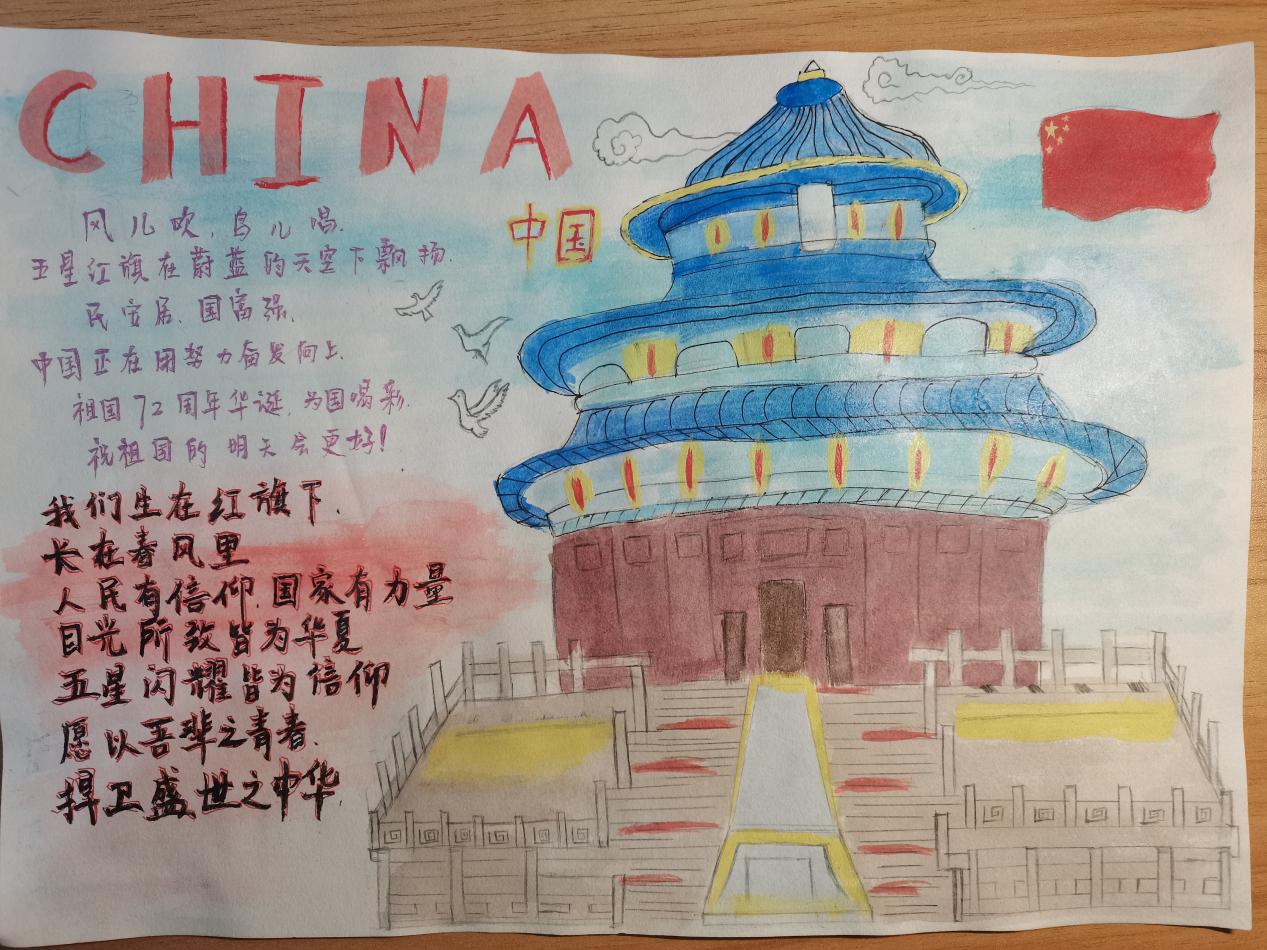 CHINA
中国
风儿吹,鸟儿唱.
五星红旗在蔚蓝的天空下飘扬.
民安居、国富强、
中国正在用努力奋发向上.
祖国72周年华诞,为国喝彩.
祝祖国的明天会更好!
我们生在红旗下.
长在春风里
人民有信仰.国家有力量
目光所致皆为华夏
五星闪耀皆为信仰
愿以吾辈之青春.
捍卫盛世之中华.